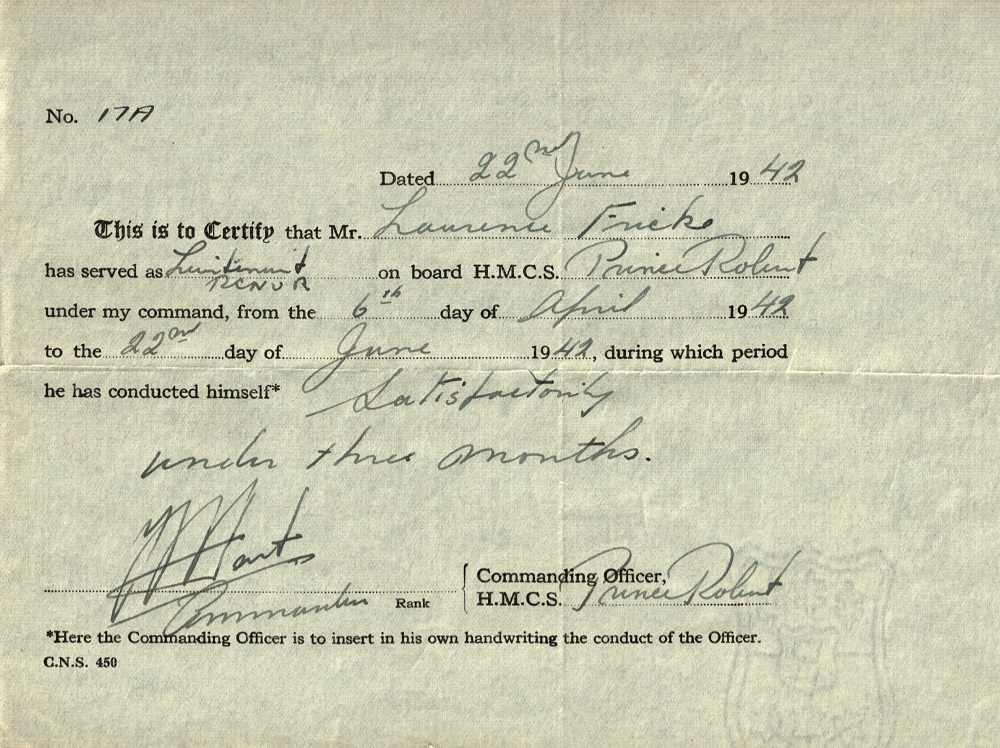 No. 17A
Dated 22nd June 1942
This is to Certify that Mr. Laurence Fricke
has served as Lieutenant on board H.M.C.S. Prince Robert
RCNVR
under my command, from the 6th day of April 1942
to the 22nd day of June 1942, during which period
he has conducted himself* Satisfactorily
under three months.
Hart
Commander Rank
Commanding Officer,
H.M.C.S. Prince Robert
*Here the Commanding Officer is to insert in his own handwriting the conduct of the Officer.
C.N.S. 450